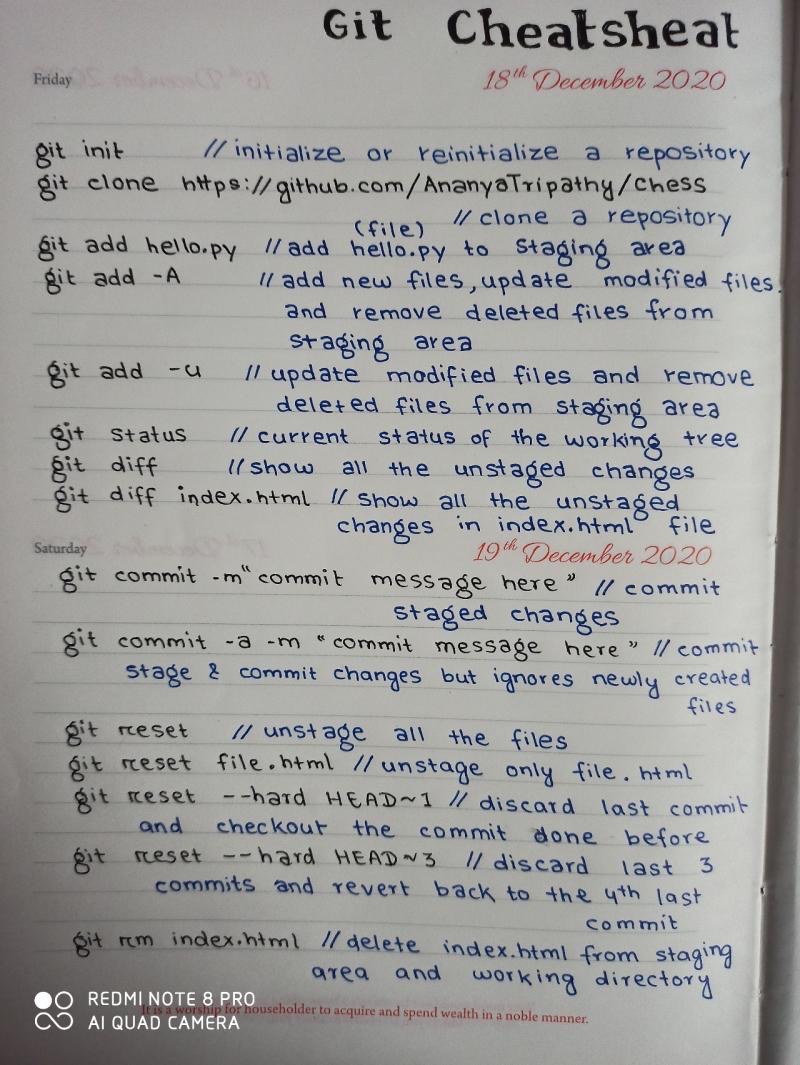 Git Cheatsheat
Friday 18th December 2020
git init // initialize or reinitialize a repository
git clone https://github.com/AnanyaTripathy/chess
// clone a repository
(file)
git add hello.py // add hello.py to staging area
git add -A // add new files, update modified files.
and remove deleted files from
staging area
git add -u // update modified files and remove
deleted files from staging area
git status // current status of the working tree
git diff // show all the unstaged changes
git diff index.html // show all the unstaged
changes in index.html file
Saturday 19th December 2020
git commit -m "commit message here" // commit
staged changes
git commit -a -m "commit message here" // commit
stage & commit changes but ignores newly created
files
git reset // unstage all the files
git reset file.html // unstage only file.html
git reset --hard HEAD~1 // discard last commit
and checkout the commit done before
git reset --hard HEAD~3 // discard last 3
commits and revert back to the 4th last
commit
git rm index.html // delete index.html from staging
area and working directory
REDMI NOTE 8 PRO
AI QUAD CAMERA
It is a worship for householder to acquire and spend wealth in a noble manner.